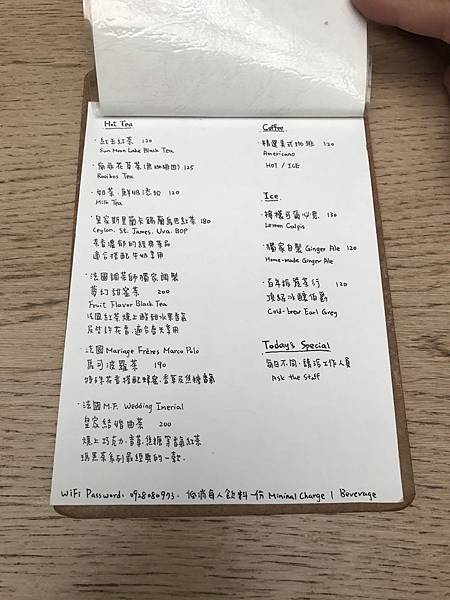 Hot Tea
・紅玉紅茶 120
Sun Moon Lake Black Tea
・南非花草茶(無咖啡因) 125
Rooibos Tea
・奶茶.鮮奶添加 120
Milk Tea
・皇家斯里蘭卡錫蘭烏巴紅茶 180
Ceylon. St. James. Uva. BOP
茶香濃郁的經典茶品
適合搭配牛奶享用
・法國調茶師獨家調製
夢幻甜蜜茶 200
Fruit Flavor Black Tea
法國紅茶燻上酸甜水果香氣
及些許花香.適合春天享用
・法國 Mariage Frères Marco Polo
馬可波羅茶 190
特殊花香搭配蜂蜜.香草及焦糖香氣
・法國 M.F. Wedding Imerial
皇家結婚曲茶 200
燻上巧克力.香草.焦糖等調紅茶
瑪黑茶系列最經典的一款.
Coffee
・精選美式咖啡 120
Americano
HOT / ICE
Ice
・檸檬可爾必思 130
Lemon Calpis
・獨家自製 Ginger Ale 120
Home-made Ginger Ale
・百年振發茶行 120
頂級冰釀伯爵
Cold-brew Earl Grey
Today's Special
每日不同.請洽工作人員
Ask the Staff
WiFi Password: 0928080973. 低消每人飲料一份 Mininal Charge 1 Beverage